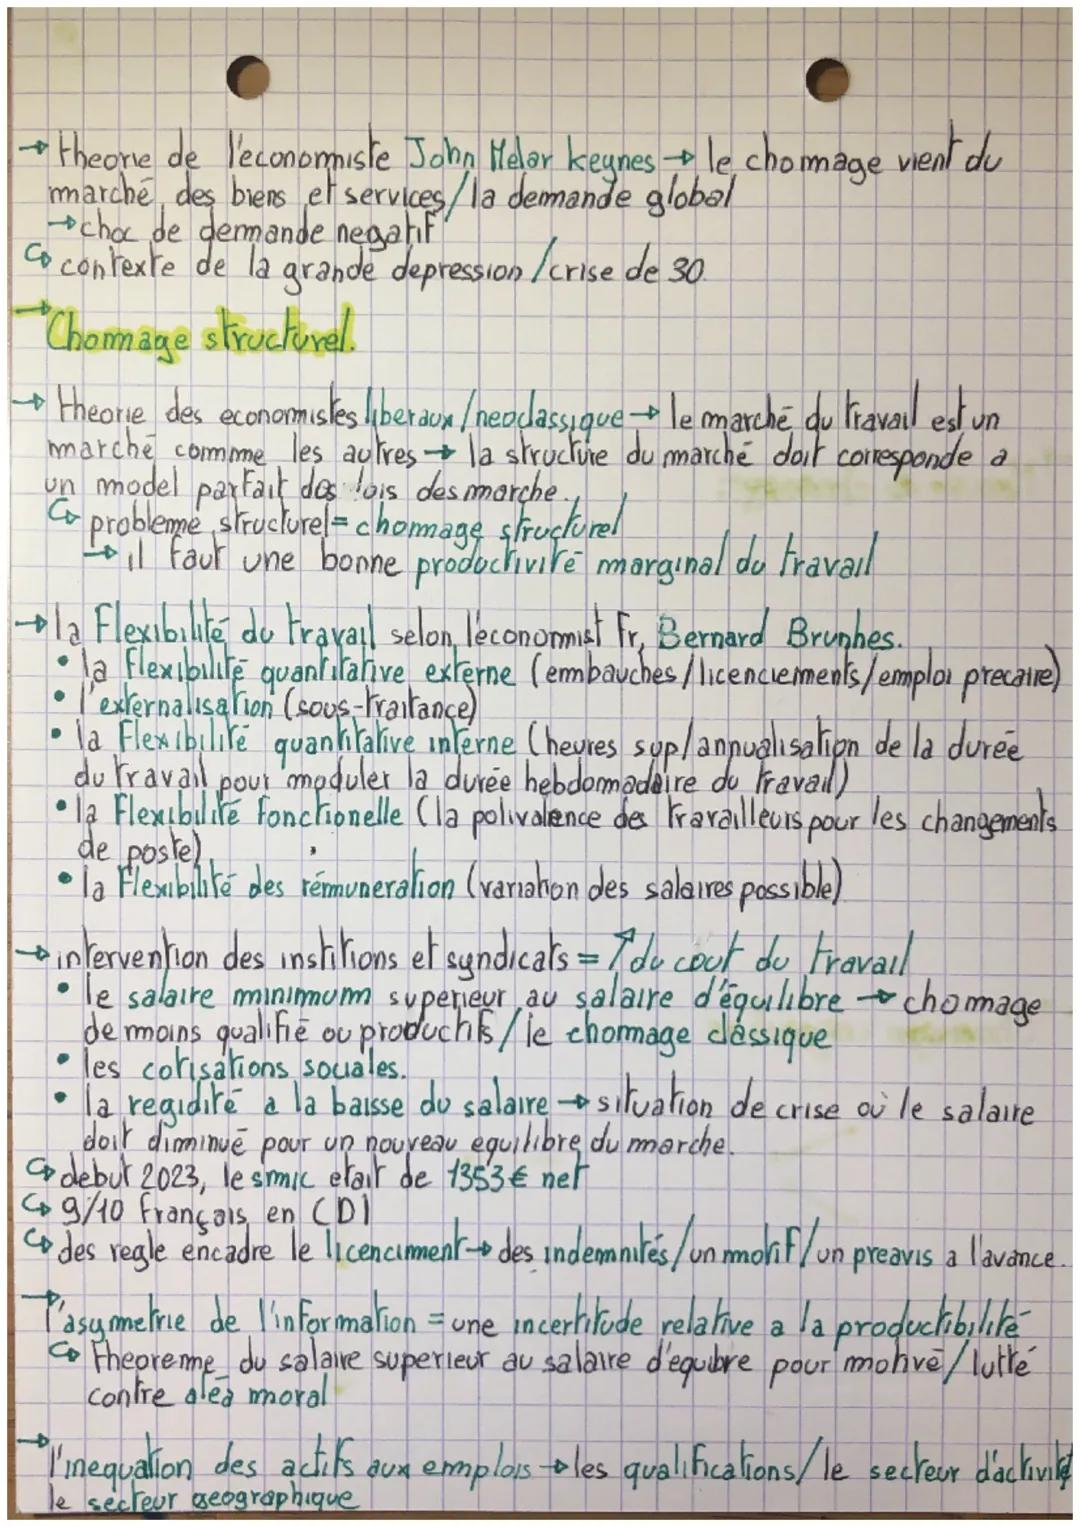 → theorie de l'economiste John Melar keynes → le chomage vient du
marché des biens et services/la demande global
→ choc de demande negatif
↳ contexte de la grande depression/crise de 30.
→ Chomage structurel.
→ theorie des economistes liberaux/neoclassique → le marché du travail est un
marché commme les autres → la structure du marché doit corresponde a
un model parfait des lois des marche.
↳ probleme structurel = chomage structurel
→ il faut une bonne productivité marginal du travail
→ la Flexibilité du travail selon l'economist Fr, Bernard Brunhes.
• la Flexibilité quantitative externe (embauches/licenciements/emploi precaire)
• l'externalisation (sous-traitance)
• la Flexibilité quantitative interne (heures sup/annualisation de la durée
du travail pour moduler la durée hebdomadaire du travail)
• la Flexibilité fonctionelle (la polivalence des travailleurs pour les changements
de poste)
• la Flexibilité des rémuneration (variation des salaires possible)
→ intervention des institions et syndicats = ↑ du cout du travail
• le salaire minimum superieur au salaire d'équilibre → chomage
de moins qualifié ou productifs/le chomage classique
• les cotisations sociales.
• la regidité a la baisse du salaire → situation de crise où le salaire
doit diminué pour un nouveau equilibre du marche.
↳ debut 2023, le smic etait de 1353€ net
↳ 9/10 Français en CDI
↳ des regle encadre le licenciment → des indemnités/un motif/un preavis a l'avance.
→ l'asymetrie de l'information = une incertitude relative a la productibilité
↳ Theoreme du salaire superieur au salaire d'equibre pour motivé/lutté
contre aléa moral
→ l'inequation des actifs aux emplois → les qualifications/le secteur d'activité
le secteur geographique